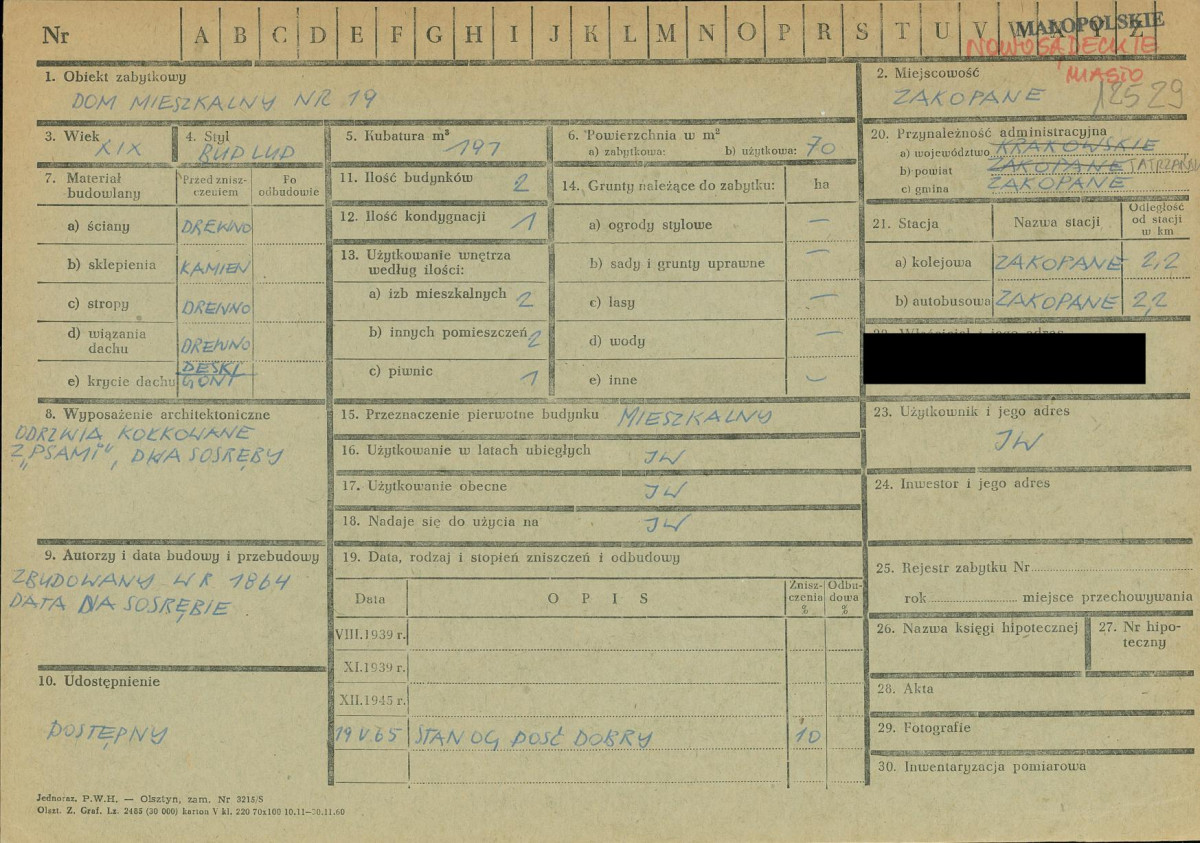 Nr A B C D E F G H I J K L M N O P R S T U V W X Y Z
MAŁOPOLSKIE
NOWOSĄDECKIE
MIASTO
1. Obiekt zabytkowy
DOM MIESZKALNY NR 19
2. Miejscowość
ZAKOPANE 12529
3. Wiek
XIX
4. Styl
BUD LUD
5. Kubatura m³
191
6. Powierzchnia w m²
a) zabytkowa: b) użytkowa: 70
20. Przynależność administracyjna
a) województwo KRAKOWSKIE
b) powiat ZAKOPANE
c) gmina ZAKOPANE
7. Materiał budowlany
Przed zniszczeniem
Po odbudowie
a) ściany DREWNO
b) sklepienia KAMIEŃ
c) stropy DREWNO
d) wiązania dachu DREWNO
e) krycie dachu DESKI
GONT
11. Ilość budynków 2
12. Ilość kondygnacji 1
13. Użytkowanie wnętrza
według ilości:
a) izb mieszkalnych 2
b) innych pomieszczeń 2
c) piwnic 1
14. Grunty należące do zabytku: ha
a) ogrody stylowe —
b) sady i grunty uprawne —
c) lasy —
d) wody —
e) inne —
21. Stacja
Nazwa stacji
Odległość
od stacji
w km
a) kolejowa ZAKOPANE 2,2
b) autobusowa ZAKOPANE 2,2
8. Wyposażenie architektoniczne
ODRZWIA KOŁKOWANE
Z „PSAMI", DWA SOSRĘBY
15. Przeznaczenie pierwotne budynku MIESZKALNY
16. Użytkowanie w latach ubiegłych JW
17. Użytkowanie obecne JW
18. Nadaje się do użycia na JW
23. Użytkownik i jego adres
JW
24. Inwestor i jego adres
9. Autorzy i data budowy i przebudowy
ZBUDOWANY W R 1864
DATA NA SOSRĘBIE
19. Data, rodzaj i stopień zniszczeń i odbudowy
Data
O P I S
Znisz-
czenia
%
Odbu-
dowa
%
VIII.1939 r.
XI.1939 r.
XII.1945 r.
19 V.65 STAN OG DOŚĆ DOBRY 10
10. Udostępnienie
DOSTĘPNY
25. Rejestr zabytku Nr
rok miejsce przechowywania
26. Nazwa księgi hipotecznej
27. Nr hipo-
teczny
28. Akta
29. Fotografie
30. Inwentaryzacja pomiarowa
Jednoraz. P.W.H. — Olsztyn, zam. Nr 3215/S
Olszt. Z. Graf. Lz. 2485 (30 000) karton V kl. 220 70x100 10.11—30.11.60